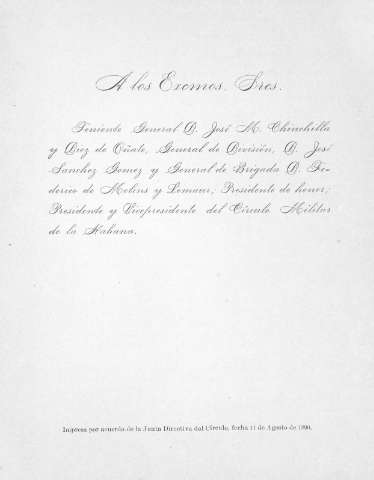 A los Excmos. Sres.
Teniente General D. José M. Chinchilla
y Diez de Oñate, General de División, D. José
Sanchez Gomez y General de Brigada D. Fe-
derico de Molins y Lemaur; Presidente de honor;
Presidente y Vicepresidente del Círculo Militar
de la Habana.
Impresa por acuerdo de la Junta Directiva del Círculo, fecha 11 de Agosto de 1890.